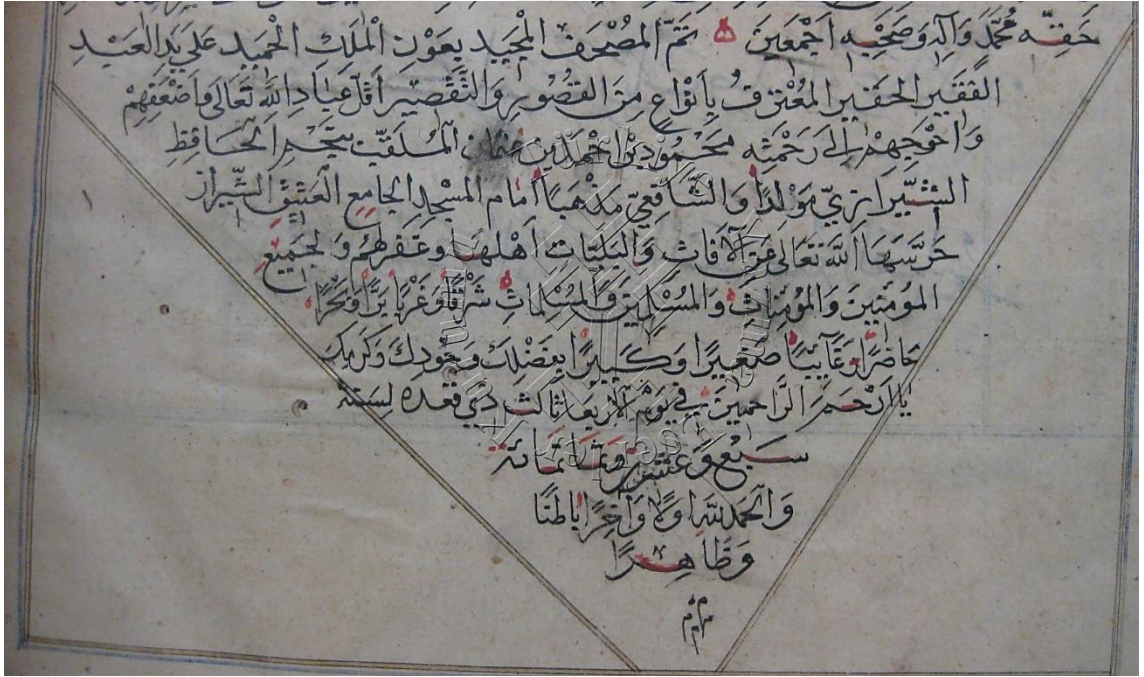 حقه محمد وآله وصحبه اجمعين تم المصحف المجيد بعون الملك الحميد على يد العبد
الفقير الحقير المعترف بأنواع من القصور والتقصير اقل عباد الله تعالى واضعفهم
واحوجهم الى رحمته محمود بن احمد بن عثمان الملقب بنجم الحافظ
الشيرازي مولدا والشافعي مذهبا امام المسجد الجامع العتيق الشيراز
حرسها الله تعالى عن الآفات والبليات اهلها وغفرلهم ولجميع
المؤمنين والمؤمنات والمسلمين والمسلمات شرقا وغربا برا وبحرا
حاضرا وغايبا صغيرا وكبيرا بفضلك وجودك وكرمك
يا ارحم الراحمين في يوم الاربعا ثالث ذي قعده لسنة
سبع وعشر وثمانمائة
والحمد لله اولا وآخرا باطنا
وظاهرا